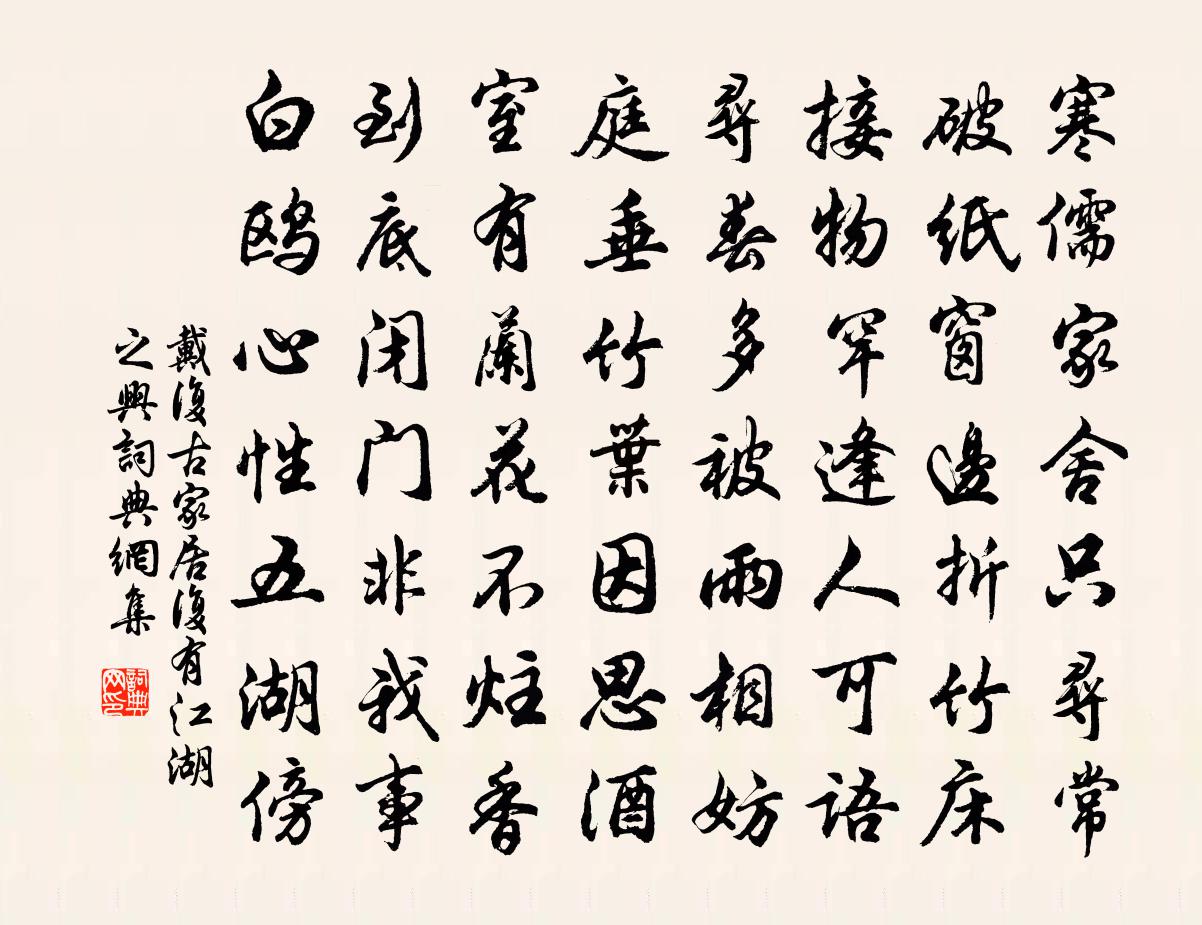 寒儒家舍只尋常
破紙窗邊折竹床
接物罕逢人可語
尋春多被雨相妨
庭垂竹葉因思酒
室有蘭花不炷香
到底闭门非我事
白鸥心性五湖傍
戴復古家居復有江湖
之興詞典網集
詞典
网印